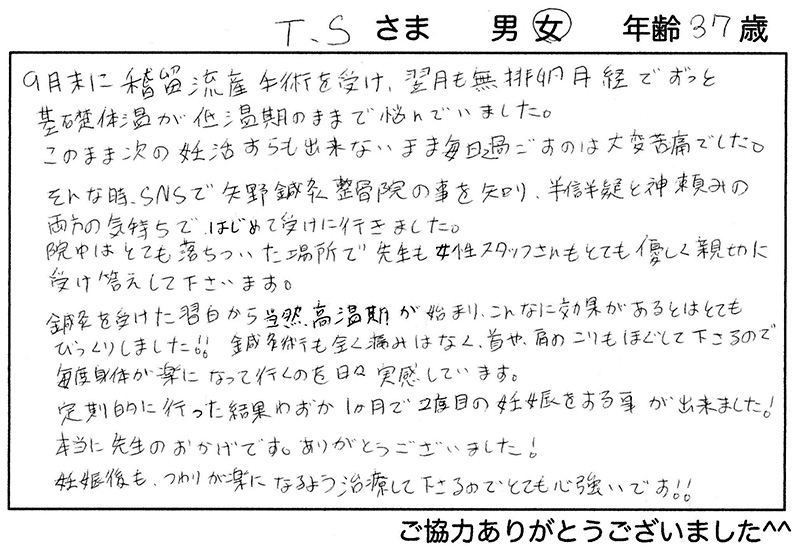 T.S さま 男 女 年齢 37 歳
9月末に稽留流産手術を受け、翌月も無排卵月経でずっと
基礎体温が低温期のままで悩んでいました。
このまま次の妊活すらも出来ないまま毎日過ごすのは大変苦痛でした。
そんな時、SNSで矢野鍼灸整骨院の事を知り、半信半疑と神頼みの
両方の気持ちで、はじめて受けに行きました。
院内はとても落ちついた場所で先生も女性スタッフさんもとても優しく親切に
受け答えして下さいます。
鍼灸を受けた翌日から当然、高温期が始まり、こんなに効果があるとはとても
びっくりしました!! 鍼灸術も全く痛みはなく、首や、肩のこりもほぐして下さるので
毎度身体が楽になって行くのを日々実感しています。
定期的に行った結果わずか1ヶ月で2度目の妊娠をする事が出来ました!
本当に先生のおかげです。ありがとうございました!
妊娠後も、つわりが楽になるよう治療して下さるのでとても心強いです!!
ご協力ありがとうございました^^